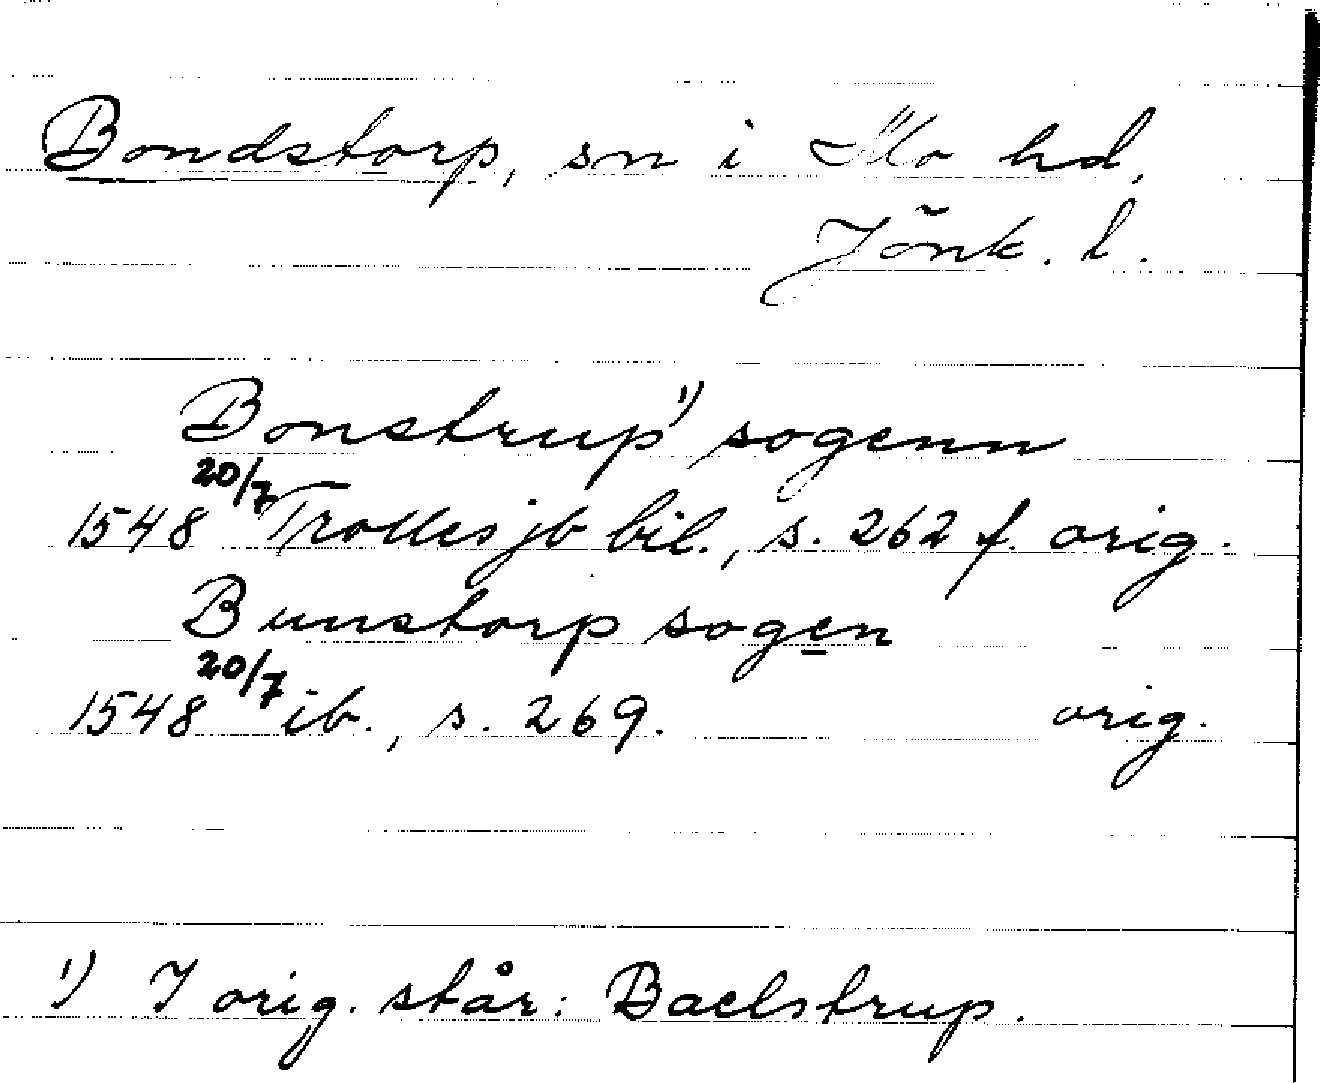 Bondstorp, sn i Mo hd,
Jönk. l.
Bonstrup¹⁾ sogenn
1548 20/7 Trolles jb bil., s. 262 f. orig.
Bunstorp sogen
1548 20/7 ib., s. 269. orig.
1) I orig. står: Baelstrup.